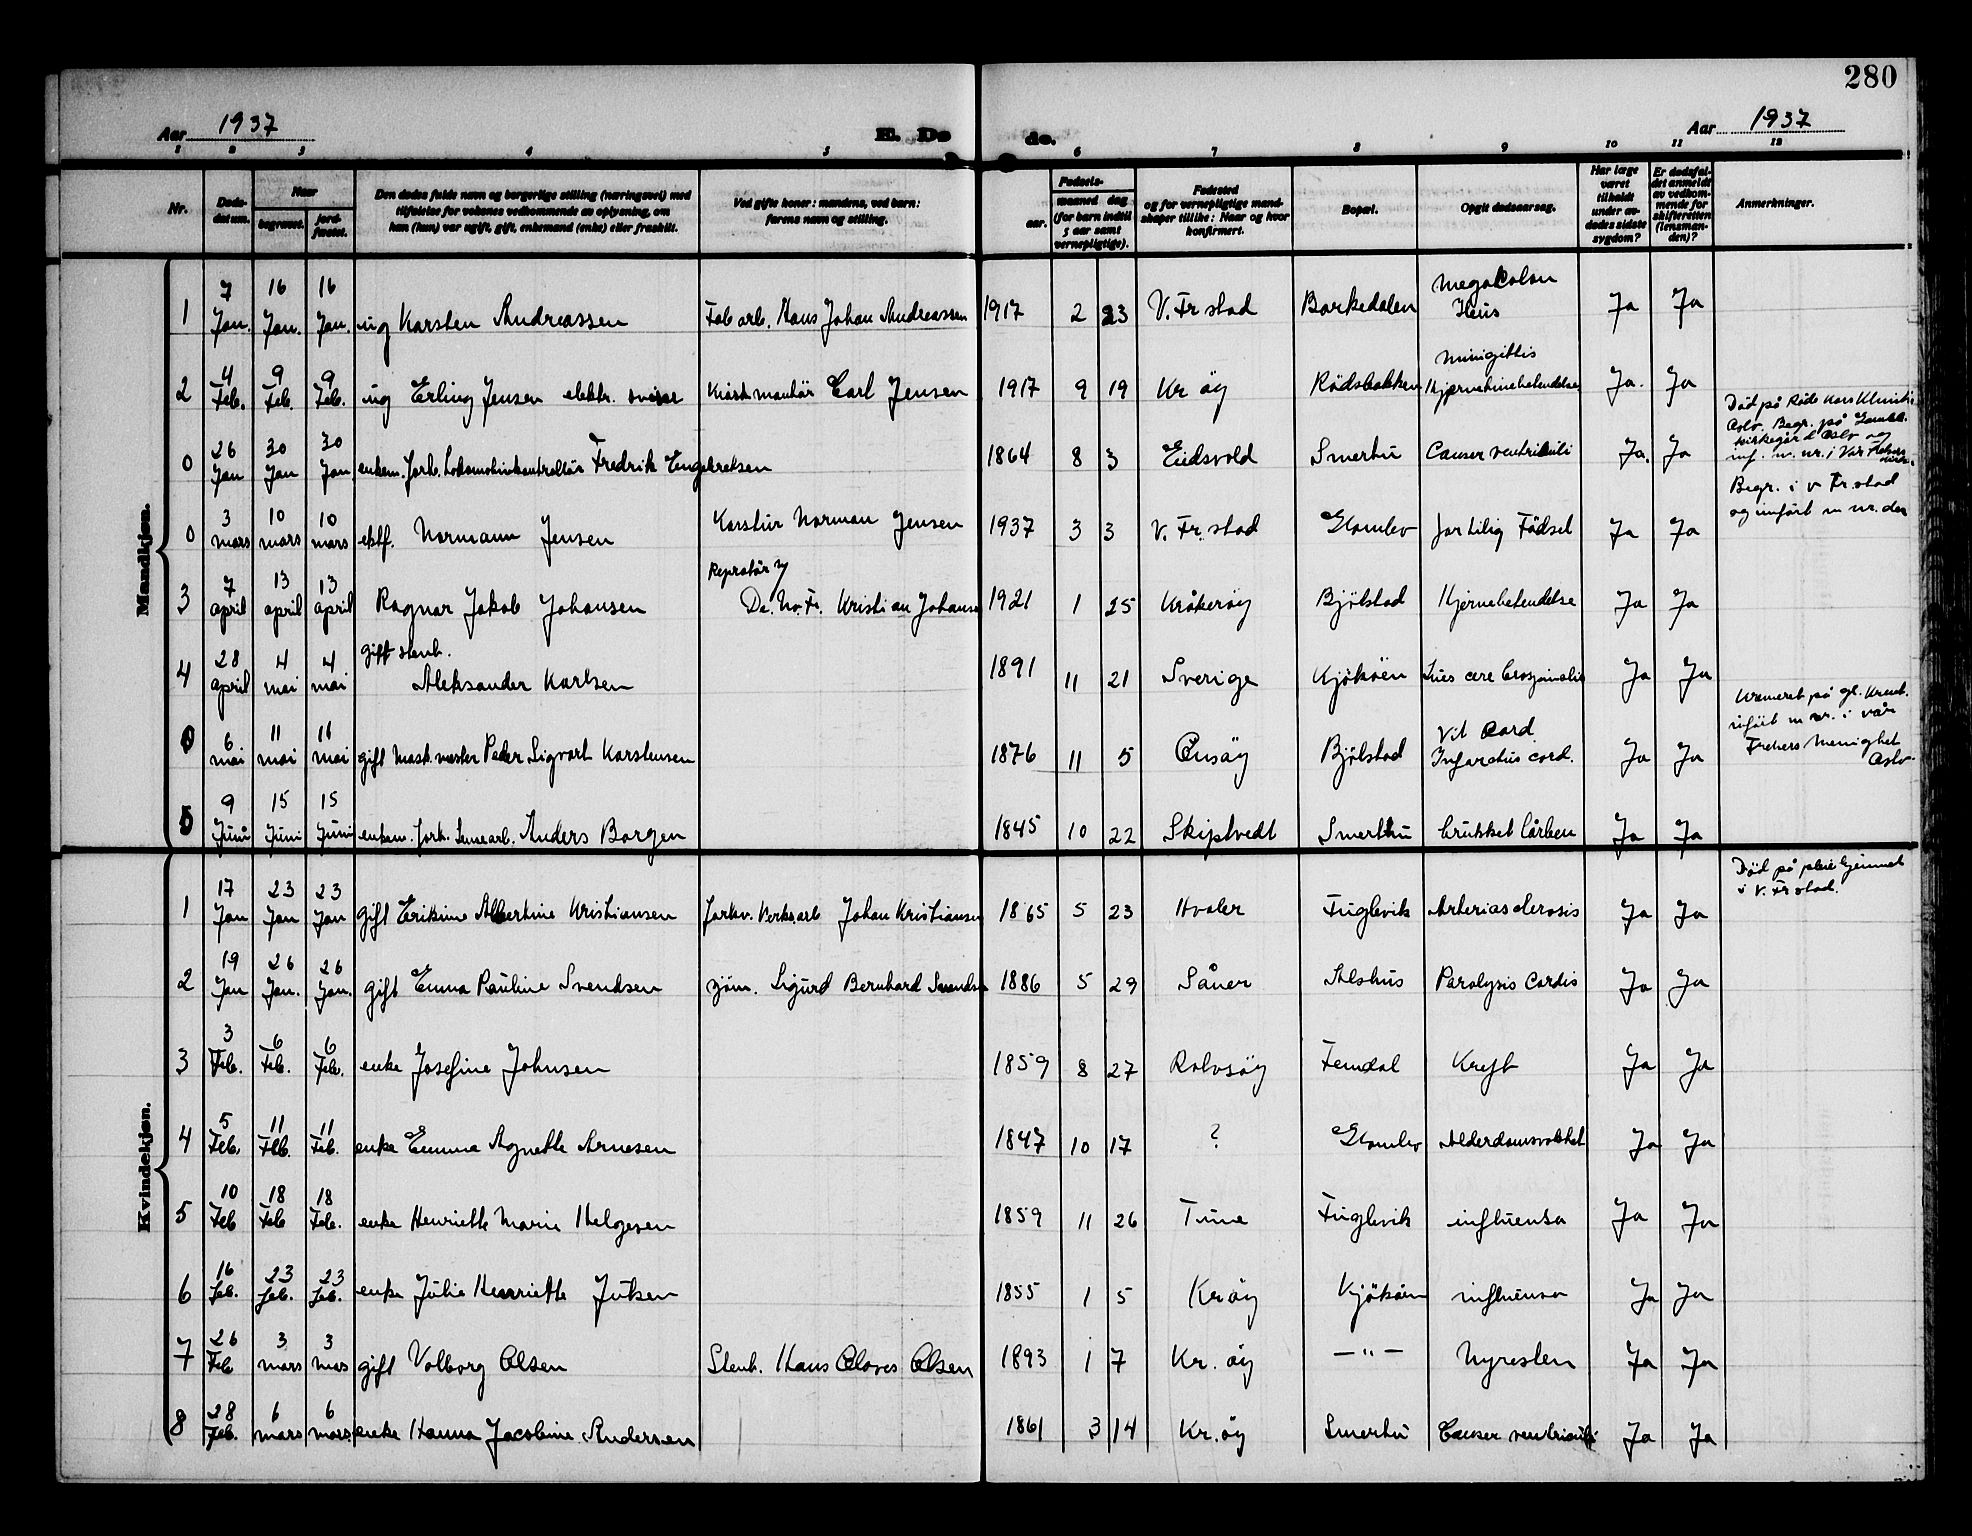 280
Aar 1937 E. Dø de. Aar 1937
1 2 3 4 5 6 7 8 9 10 11 12
Nr.
Døds-datum.
Naar
begravet.
jord-fæstet.
Den dødes fulde navn og borgerlige stilling (næringsvei) med
tilføielse for voksnes vedkommende av oplysning, om
han (hun) var ugift, gift, enkemand (enke) eller fraskilt.
Ved gifte koner: mandens, ved barn:
farens navn og stilling.
Fødsels-
aar.
maaned dag
(for barn indtil
5 aar samt
vernepligtige).
Fødested
og for vernepligtige mand-
skaper tillike: Naar og hvor
konfirmert.
Bopæl.
Opgit dødsaarsag.
Har læge
været
tilkaldt
under av-
dødes sidste
sygdom?
Er dødsfal-
det anmeldt
av vedkom-
mende for
skifteretten
(lensman-
den)?
Anmerkninger.
Mandkjøn.
1 7 Jan. 16 Jan. 16 Jan. ug Karsten Andreassen Fab arb. Hans Johan Andreassen 1917 2 23 V. Fr stad Barkedalen Megacolon Ileus Ja Ja
2 4 Feb. 9 Feb. 9 Feb. ug Erling Jensen elektr. sveiser Kiosk montör Carl Jensen 1917 9 19 Kr öy Rödsbakken Minigittis Hjernehinebetendelse Ja. Ja
0 26 Jan 30 Jan 30 Jan enkem. forh. Lokomotivkontrollör Fredrik Engebretsen 1864 8 3 Eidsvold Smertu Cancer ventriculi Ja. Ja
Död på Röde Kors Klinik
Oslo. Begr. på Gamleb.
kirkegård Oslo og
inf. m. nr. i Vår Frelsers
0 3 mars 10 mars 10 mars ektf. Normann Jensen Karstur Norman Jensen 1937 3 3 V. Fr. stad Glombo for tilig Födsel Ja Ja
Begr. i V Fr. stad
og inført m nr. der
3 7 april 13 april 13 april Ragnar Jakob Johansen Repratör
De. No. Fr. Kristian Johanse 1921 1 25 Kråkeröy Bjölstad Hjernebetendelse Ja Ja
4 28 april 4 mai 4 mai gift stenh.
Aleksander Karlsen 1891 11 21 Sverige Kjököen Lues cerebrospinalis Ja Ja
0 6 mai 11 mai 11 mai gift Mask. mester Peder Sigvart Karstensen 1876 11 5 Onsöy Bjölstad Vit Cord
Infarctus cord. Ja Ja
Kremeret på gl. Kremt.
inført m nr. i vår
Frelsers Menighet
Oslo
5 9 Juni 15 Juni 15 Juni enkem. forh. Sensearb. Anders Borgen 1845 10 22 Skiptvedt Smertu brukket lårben Ja Ja
Kvindekjøn.
1 17 Jan 23 Jan 23 Jan gift Erikine Albertine Kristiansen forhv. Verksarb Johan Kristiansen 1865 5 23 Hvaler Fuglevik Arteriasclerosis Ja Ja
Död på pleiehjemmet
i V. Fr stad.
2 19 Jan 26 Jan. 26 Jan. gift Emma Pauline Svendsen sjöm. Sigurd Bernhard Svendsen 1886 5 29 Såner Alshus Paralysis Cordis Ja Ja
3 3 Feb. 6 Feb. 6 Feb. enke Josefine Johnsen 1859 8 27 Rolvsöy Femdal Kreft Ja Ja
4 5 Feb. 11 Feb. 11 Feb. enke Emma Agnethe Arnesen 1847 10 17 ? Glombo Alderdomsvakhet Ja Ja
5 10 Feb 18 Feb 18 Feb. enke Henriette Marie Helgesen 1859 11 26 Tune Fuglevik influensa Ja Ja
6 16 feb. 23 feb. 23 feb. enke Julie Henriette Julsen 1855 1 5 Kröy Kjököen influensa Ja Ja
7 26 Feb 3 mars 3 mars gift Valborg Olsen Stenh. Hans Olaves Olsen 1893 1 7 Kr. öy — " — Nyresten Ja Ja
8 28 Feb. 6 mars 6 mars. enke Hanna Jacobine Andersen 1861 3 14 Kr. öy Smertu Cancer ventriculi Ja Ja